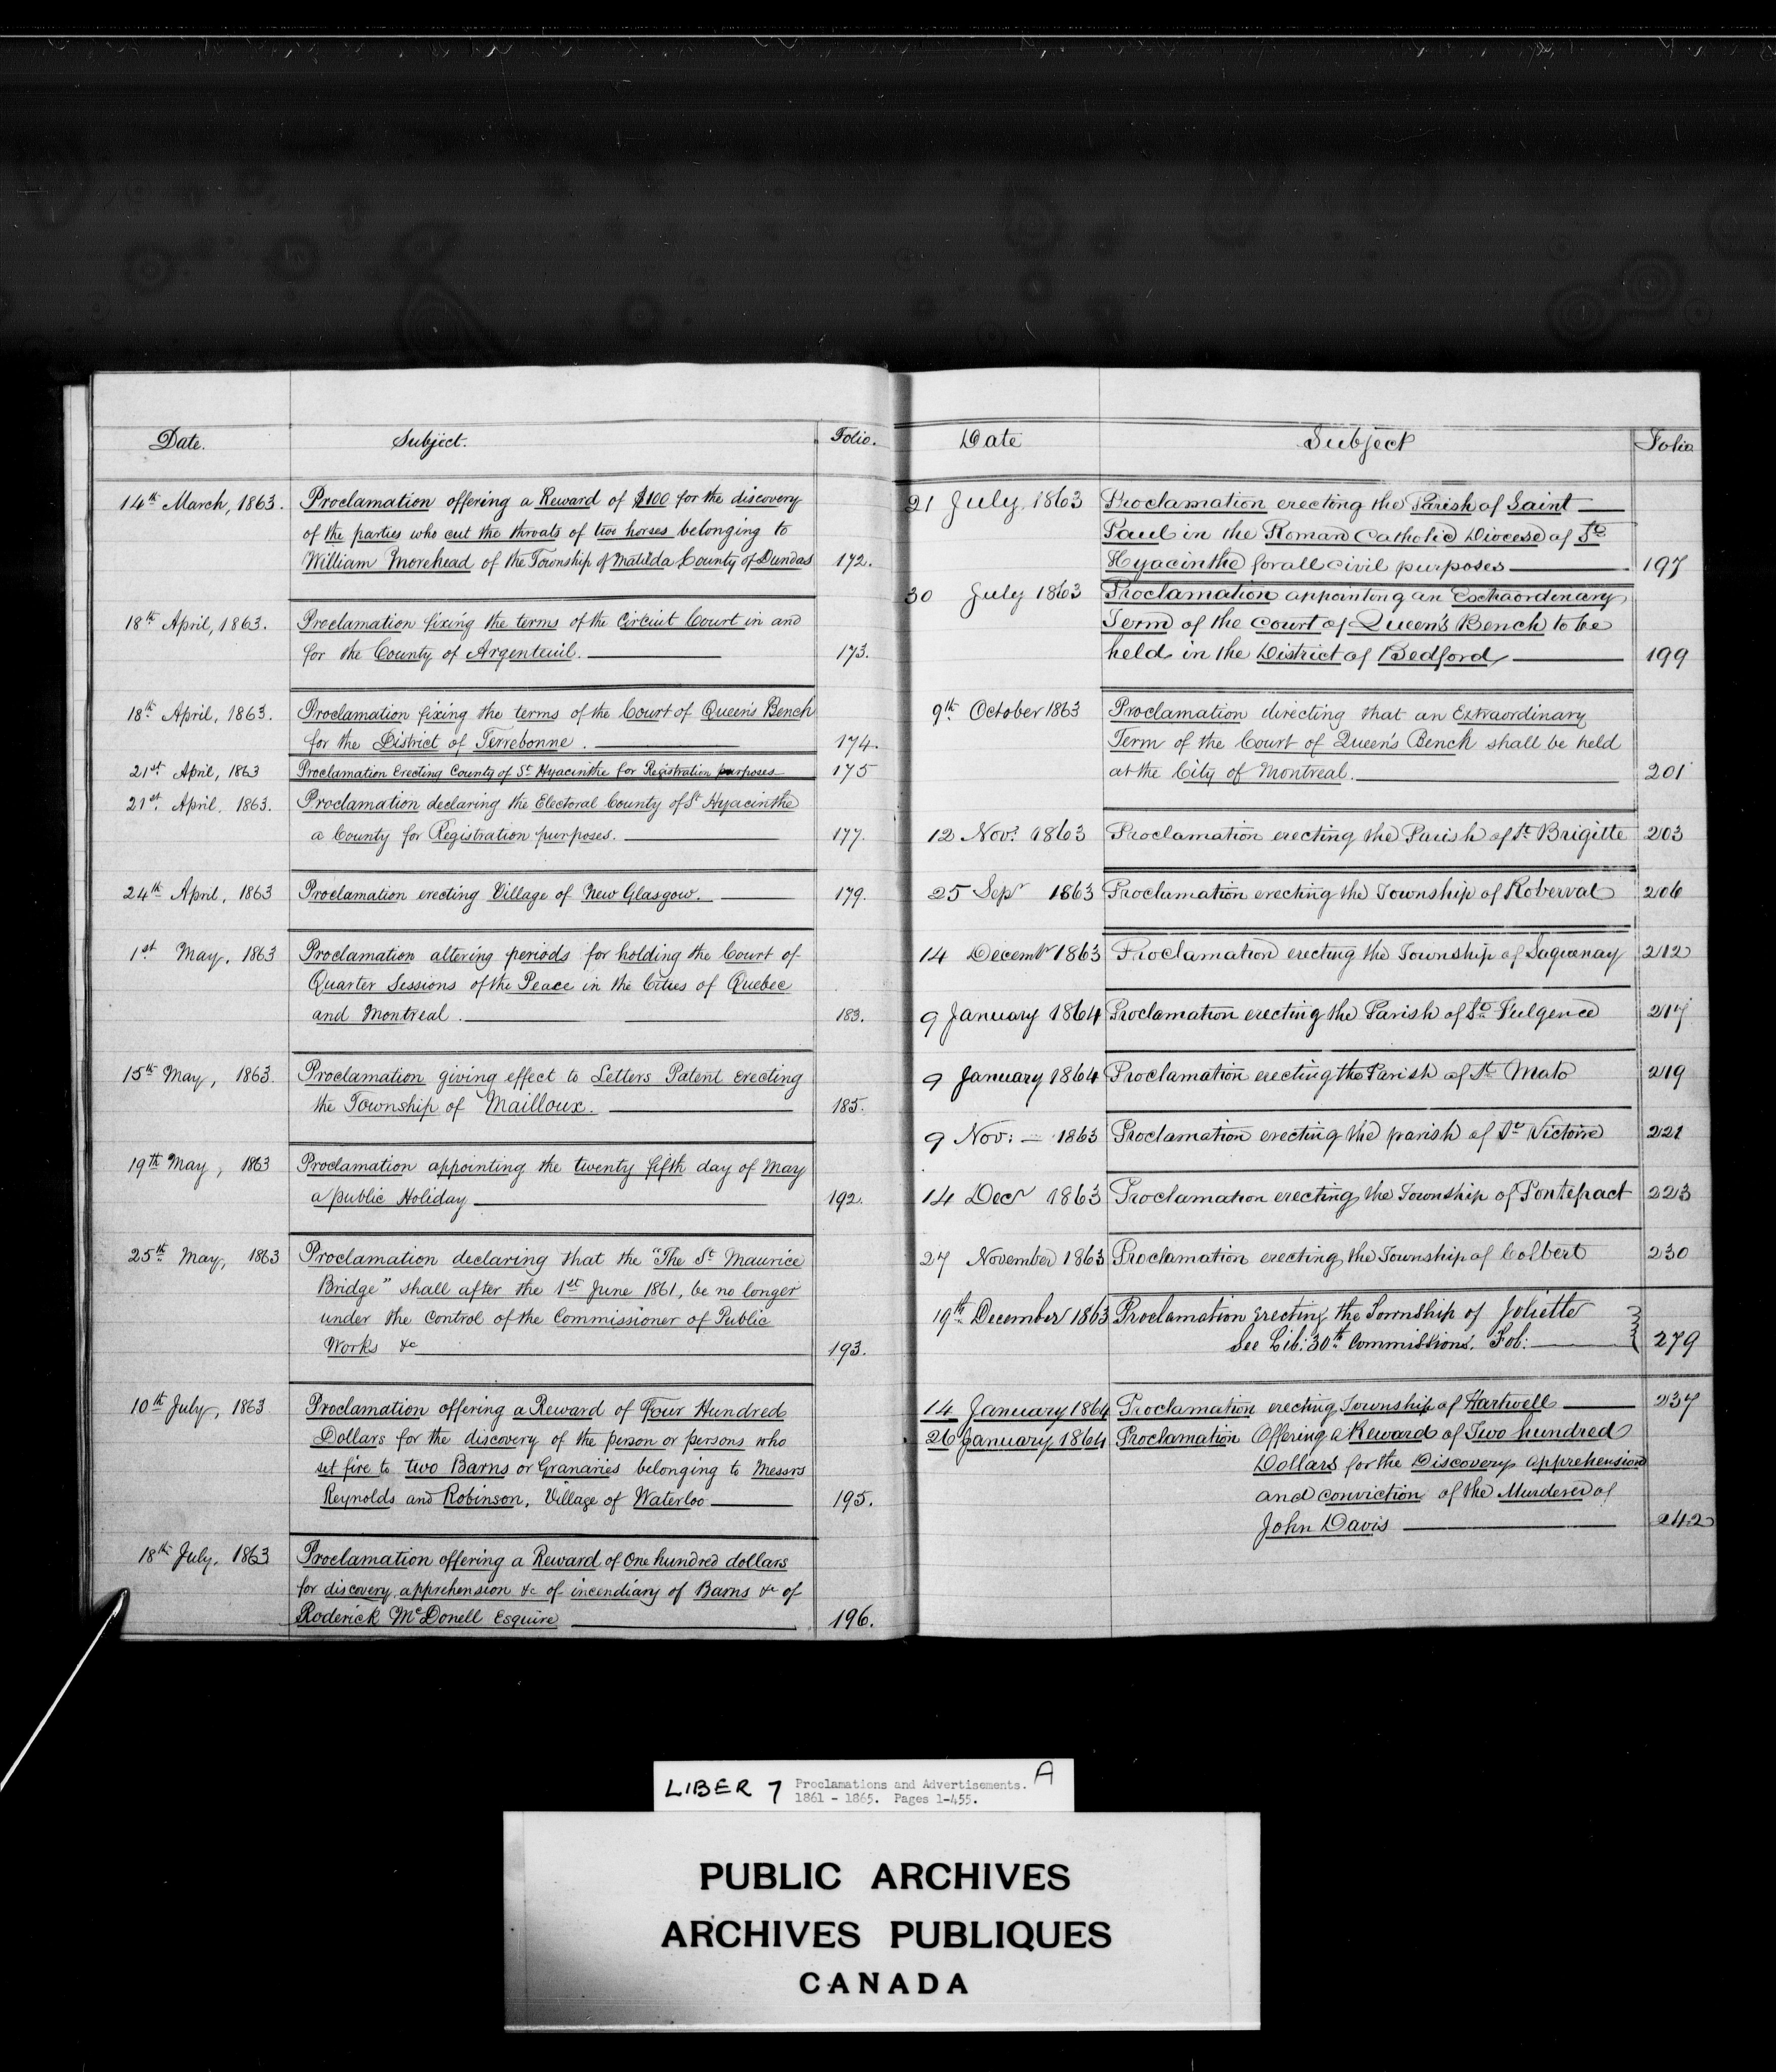 Date. Subject. Folio.
14th March, 1863. Proclamation offering a Reward of $100 for the discovery
of the parties who cut the throats of two horses belonging to
William Morehead of the Township of Matilda County of Dundas 172.
18th April, 1863. Proclamation fixing the terms of the Circuit Court in and
for the County of Argenteuil. 173.
18th April, 1863. Proclamation fixing the terms of the Court of Queen's Bench
for the District of Terrebonne. 174.
21st April, 1863 Proclamation Erecting County of St Hyacinthe for Registration purposes 175
21st April, 1863. Proclamation declaring the Electoral County of St Hyacinthe
a County for Registration purposes. 177.
24th April, 1863 Proclamation erecting Village of New Glasgow. 179.
1st May, 1863 Proclamation altering periods for holding the Court of
Quarter Sessions of the Peace in the Cities of Quebec
and Montreal. 183.
15th May, 1863. Proclamation giving effect to Letters Patent erecting
the Township of Mailloux. 185.
19th May, 1863 Proclamation appointing the twenty fifth day of May
a public Holiday 192.
25th May, 1863 Proclamation declaring that the "The St Maurice
Bridge" shall after the 1st June 1861, be no longer
under the control of the Commissioner of Public
Works &c 193.
10th July, 1863 Proclamation offering a Reward of Four Hundred
Dollars for the discovery of the person or persons who
set fire to two Barns or Granaries belonging to Messrs
Reynolds and Robinson, Village of Waterloo 195.
18th July, 1863 Proclamation offering a Reward of One hundred dollars
for discovery, apprehension &c of incendiary of Barns &c of
Roderick McDonell Esquire 196.
Date Subject Folio
21 July 1863 Proclamation erecting the Parish of Saint
Paul in the Roman Catholic Diocese of St
Hyacinthe for all civil purposes 197
30 July 1863 Proclamation appointing an Extraordinary
Term of the Court of Queen's Bench to be
held in the District of Bedford 199
9th October 1863 Proclamation directing that an Extraordinary
Term of the Court of Queen's Bench shall be held
at the City of Montreal. 201
12 Novr 1863 Proclamation erecting the Parish of St Brigitte 203
25 Sepr 1863 Proclamation erecting the Township of Roberval 206
14 Decembr 1863 Proclamation erecting the Township of Saguenay 212
9 January 1864 Proclamation erecting the Parish of St Fulgence 217
9 January 1864 Proclamation erecting the Parish of St Malo 219
9 Nov: 1863 Proclamation erecting the parish of Ste Victoire 221
14 Decr 1863 Proclamation erecting the Township of Pontefract 223
27 November 1863 Proclamation erecting the Township of Colbert 230
19th December 1863 Proclamation Erecting the Township of Joliette
See Lib: 30th Commissions. Fol: 279
14 January 1864 Proclamation erecting Township of Hartwell 237
26 January 1864 Proclamation Offering a Reward of Two hundred
Dollars for the Discovery apprehension
and conviction of the Murderer of
John Davis 242
LIBER 7 Proclamations and Advertisements. A
1861 - 1865. Pages 1-455.
PUBLIC ARCHIVES
ARCHIVES PUBLIQUES
CANADA